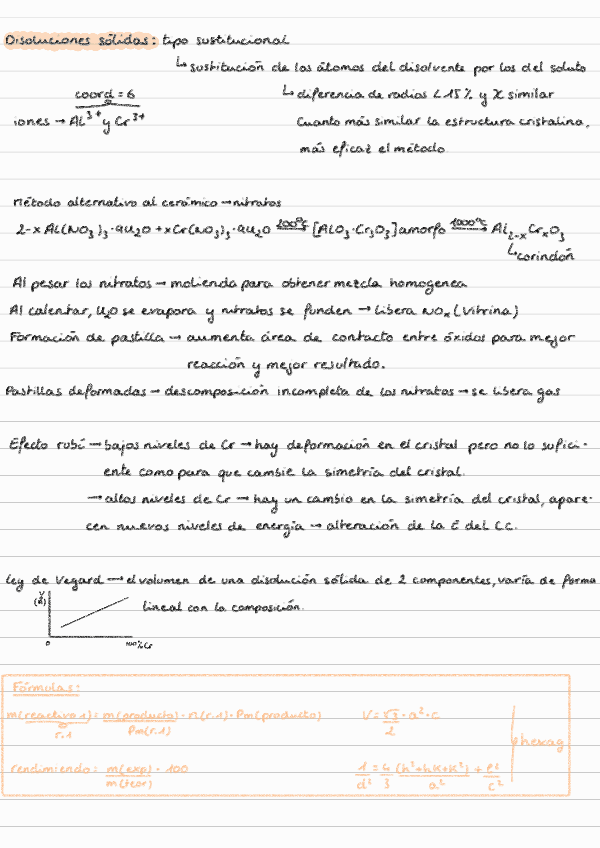 Disoluciones sólidas: tipo sustitucional
↳ sustitución de los átomos del disolvente por los del soluto
coord = 6
↳ diferencia de radios < 15% y X similar
iones → Al³⁺ y Cr³⁺
Cuanto más similar la estructura cristalina,
más eficaz el método
Método alternativo al cerámico → nitratos
2-x Al(NO₃)₃·9H₂O + xCr(NO₃)₃·9H₂O 200ºC→ [AlO₃·Cr₂O₃] amorfo 1000ºC→ Al₂₋ₓCrₓO₃
↳ corindón
Al pesar los nitratos → molienda para obtener mezcla homogenea
Al calentar, H₂O se evapora y nitratos se funden → libera NOₓ (vitrina)
Formación de pastilla → aumenta área de contacto entre óxidos para mejor
reacción y mejor resultado.
Pastillas deformadas → descomposición incompleta de los nitratos → se libera gas
Efecto rubí → bajos niveles de Cr → hay deformación en el cristal pero no lo sufici-
ente como para que cambie la simetría del cristal.
→ altos niveles de Cr → hay un cambio en la simetría del cristal, apare-
cen nuevos niveles de energía → alteración de la E del C.C.
Ley de Vegard → el volumen de una disolución sólida de 2 componentes, varía de forma
lineal con la composición.
V
0
% Cr
Fórmulas:
m(reactivo 1) = m(producto) · n(r.1) · Pm(producto)
r.1
Pm(r.1)
V = √3 · a² · c
2
hexag
rendimiendo: m(exp) · 100
m(teor)
1 = 4 (h²+hk+k²) + l²
d² 3 a² c²